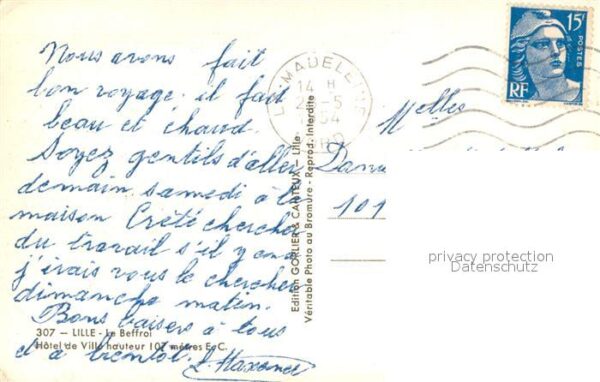 Nous avons fait
bon voyage. il fait
beau et chaud.
Soyez gentils d'aller
demain samedi à la
maison Crété chercher
du travail s'il y en a
j'irais vous le chercher
dimanche matin.
Bons baisers à tous
et à bientôt.
307 — LILLE - Le Beffroi
Hôtel de Ville hauteur 107 mètres E.C.
Edition GORLIER & CARTEUX — Lille
Véritable Photo au Bromure - Reprod. Interdite
LA MADELEINE
14 H
5
NORD
15F
POSTES
RF
Melles
101
privacy protection
Datenschutz